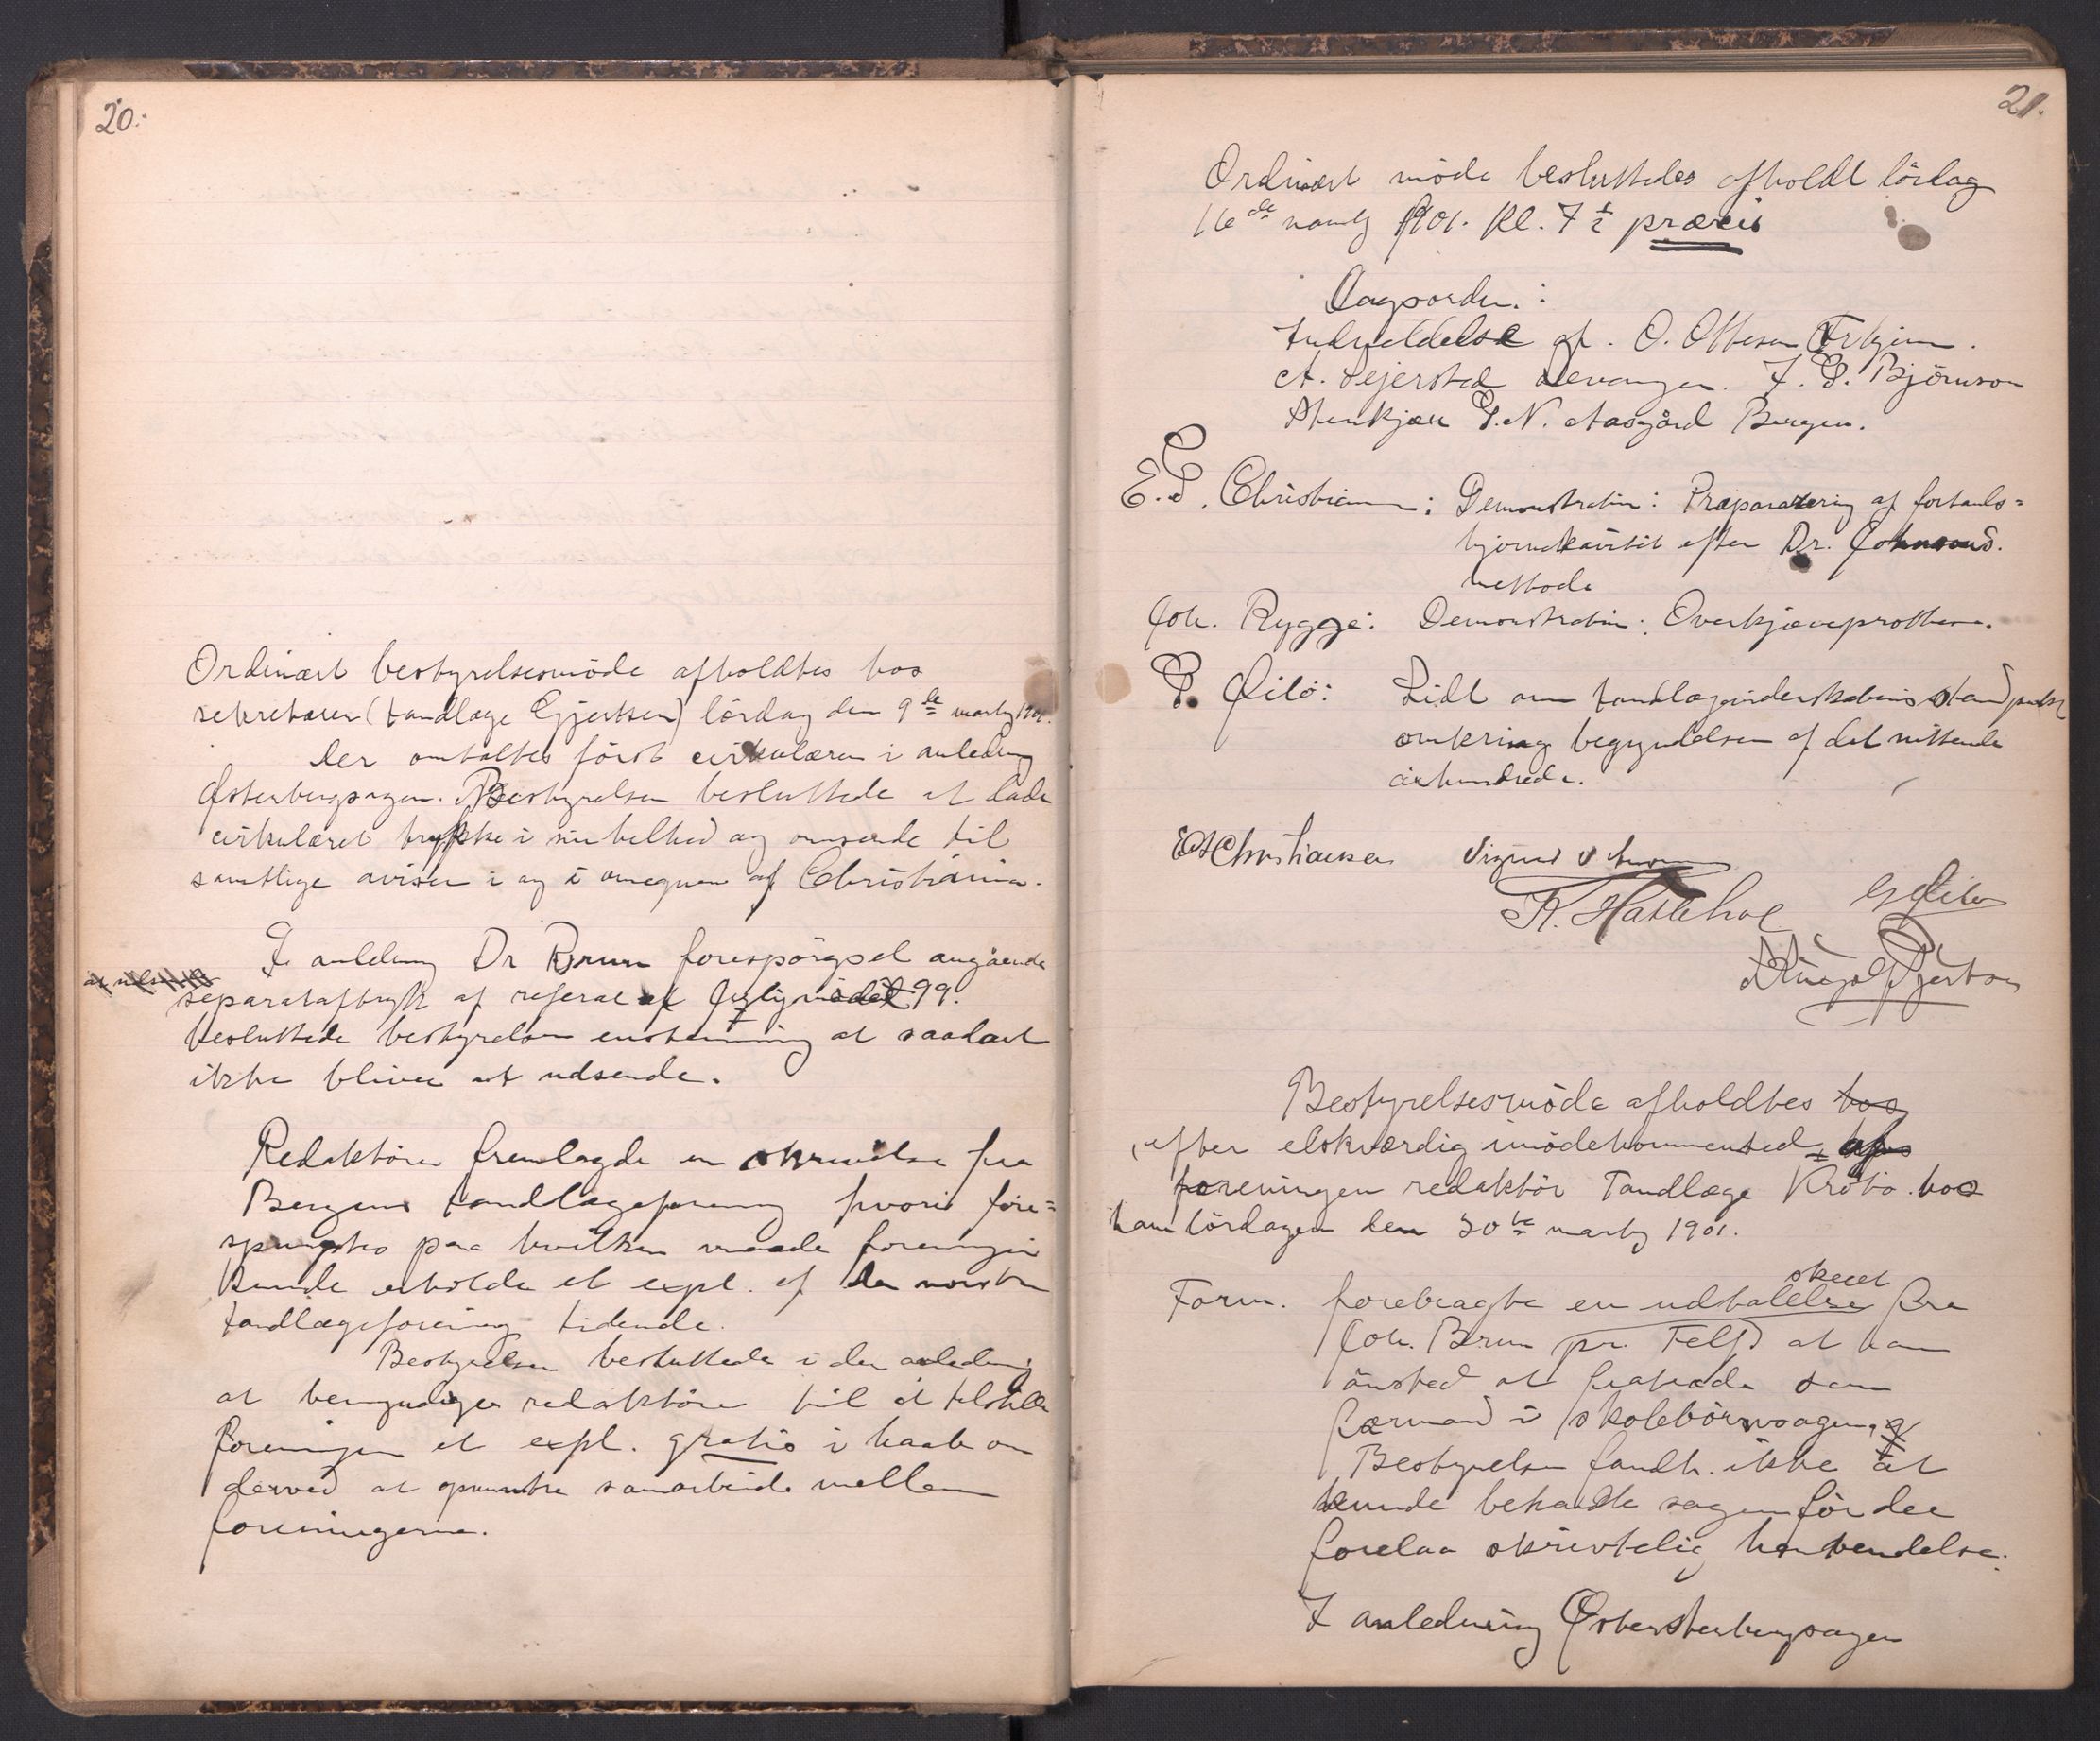 20.
Ordinært bestyrelsesmöde afholdtes hos
sekretæren (tandlæge Gjertsen) lördag den 9de marts 1901.
Der omtaltes först cirkulæren i anledning
Østerbergsagen. Bestyrelsen besluttede at lade
cirkulæret trykke i sin helhed og omsende til
samtlige aviser i og i omegnen af Christiania.
I anledning Dr Brun forespörgsel angående
separataftryk af referat af Julymödet 99.
besluttede bestyrelsen enstemming at saadant
ikke bliver at udsende.
Redaktören fremlagde en skrivelse fra
Bergens tandlægeforening hvori fore=
spurgtes paa hvilken maade foreningen
kunde erholde et expl. af den norske
tandlægeforening tidende.
Bestyrelsen besluttede i den anledning
at bemyndige redaktören til at tilstille
foreningen et expl. gratis i haab om
derved at opmuntre samarbeide mellem
foreningerne.
21.
Ordinært möde besluttedes afholdt lördag
16de marts 1901. Kl. 7 1/2 præcis
Dagsorden:
Indmeldelse af. O. Ottesen
A. Sejersted Levanger. F. E. Björnson
Stenkjær E. N. Aasgård Bergen.
E. S. Christiansen: Demonstration: Præparatering af fortands=
hjörnekavitet efter Dr. Johnsons.
methode
Joh. Rygge: Demonstration: Overkjæveprothese.
Lidt om tandlægevidenskabens standpunkt
omkring begyndelsen af det nittende
århundrede.
ESChristiansen
K. Hattehol
Bestyrelsesmöde afholdtes hos
efter elskværdig imödekommenhed af
foreningen redaktör Tandlæge Krobo hos
ham lördagen den 30te marts 1901.
Form. forebragte en udtalelse skeet fra
Joh. Brun pr. Telf. at han
önsked at fratræde som
formand i skolebörnsagen, og
Bestyrelsen fandt ikke at
kunde behandle sagen för der
forelaa skrivtelig henvendelse.
I anledning